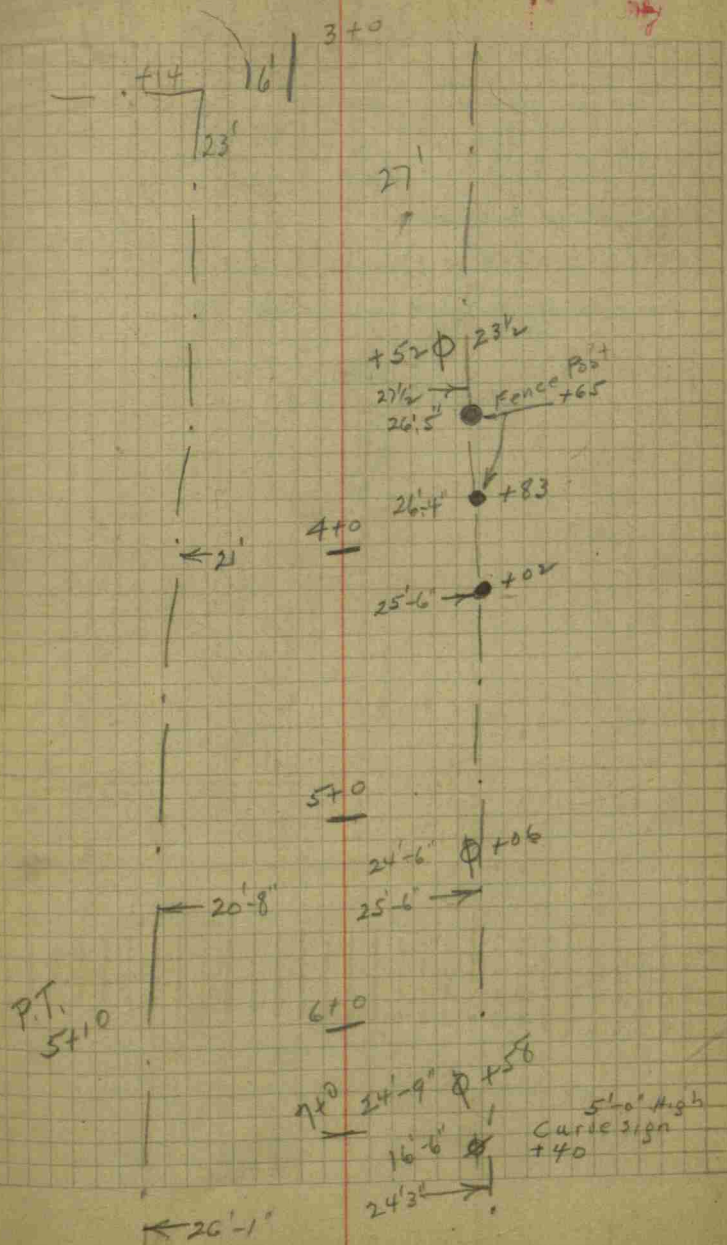 3+0
+14
16'
23'
27'
+52
23½
27½
Fence Post
+65
26'-5"
26'-4"
+83
4+0
21'
+02
25'-6"
5+0
24'-6"
+06
25'-6"
20'-8"
P.T.
5+10
6+0
24'-9"
+58
7+0
5'-0" High
Curve Sign
+40
16'-6"
24'3"
26'-1"